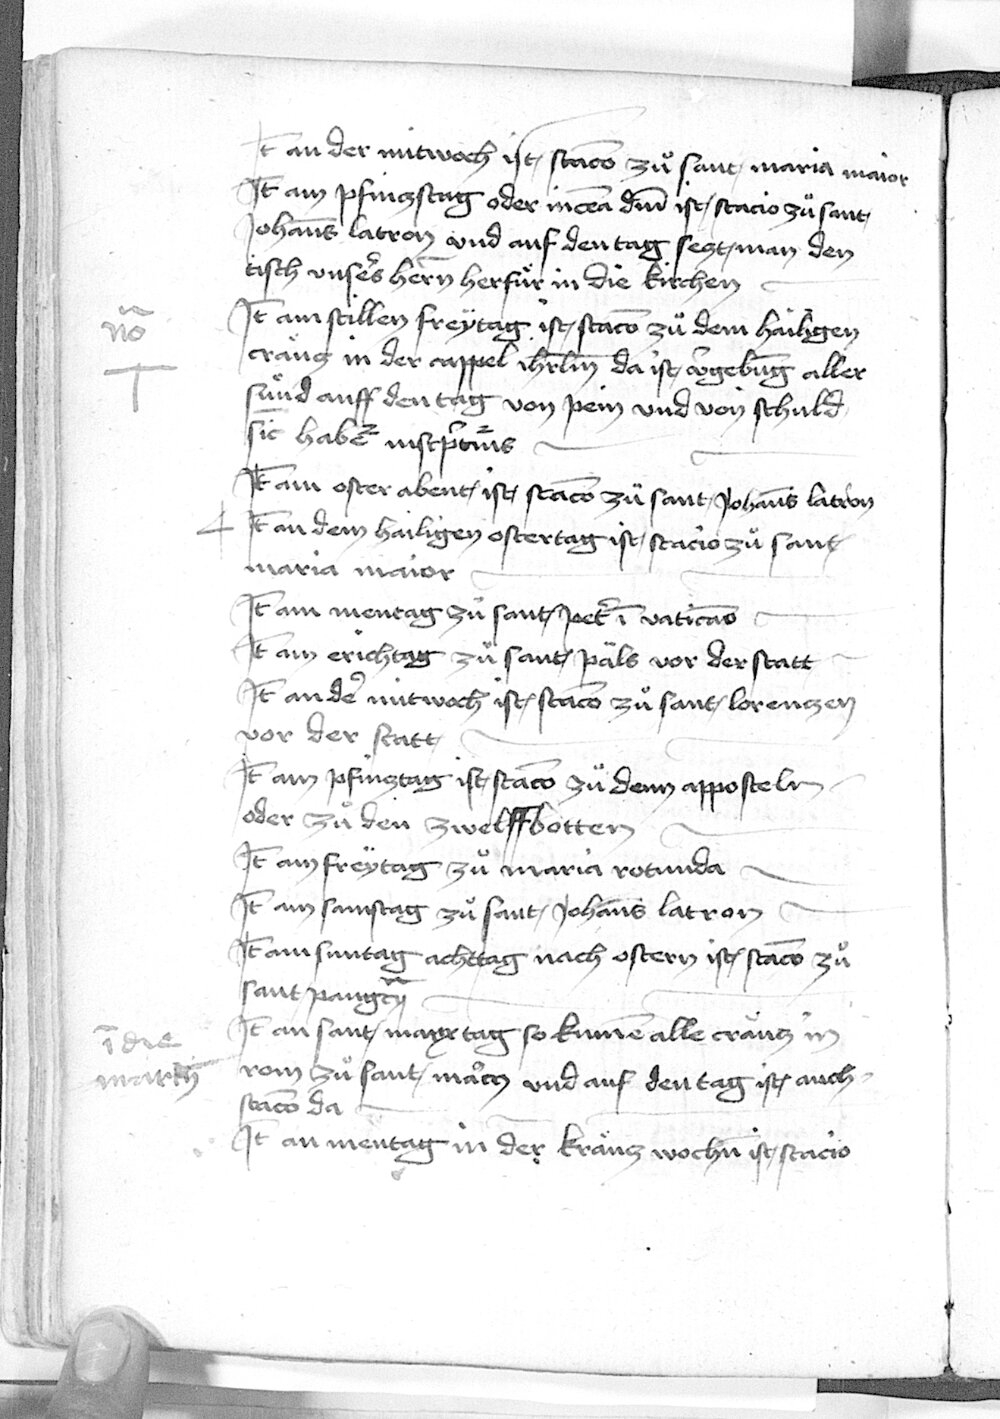 It an der mitwoch ist stac̄o zů sant maria maior
It am pfingstag oder in cēa dni̅ ist stacio zů sant
Johan̄s latron vnd auf den tag sezt man den
tisch vnsers̉ herrn̄ herfůr in die kirchen
nō
It am stillen freÿtag ist stac̄o zů dem hailigen
cräuz in der cappel ihr̄lm̄ da ist v̉gebu̅g aller
sünd auff den tag von pein vnd von schuld
sic̄ haben̄
It am oster abent ist stac̄o zů sant Johan̄s latron
It an dem hailigen ostertag ist stacio zů sant
maria maior
It am mentag zů sant pet̉ ī vatican̄o
It am erichtag zů sant päls vor der statt
It an de̓ mitwoch ist stac̄o zů sant lorenzen
vor der statt
It am pfinztag ist stac̄o zů denn apposteln
oder zů den zwelffbotten
It am freÿtag zů maria rotunda
It am samstag zů sant Johan̄s latron
It am suntag achttag nach ostern ist stac̄o zů
sant
ī die
marcij
It an sant marx tag so kumē alle cräuz in
rom zů sant und auf den tag ist auch
stac̄o da
It an mentag in der kräuz wochn̄ ist stacio